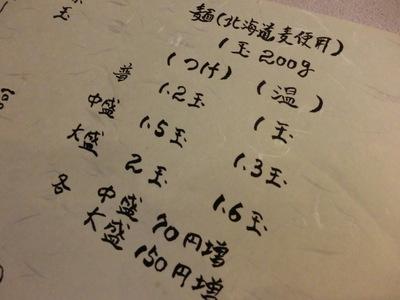 麺(北海道麦使用)
1玉 200g
(つけ) (温)
普 1.2玉 1玉
中盛 1.5玉 1.3玉
大盛 2玉 1.6玉
各 中盛 70円増
大盛 150円増
玉